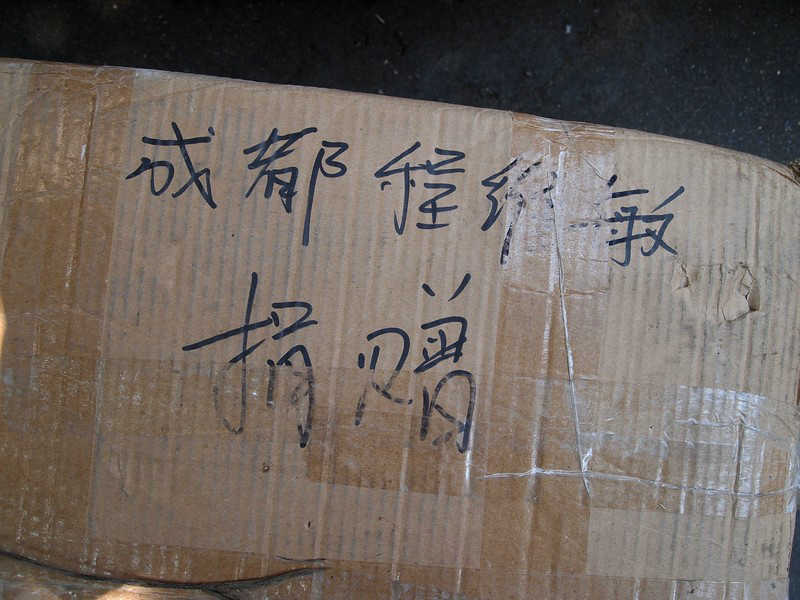 成都程维敏
捐赠